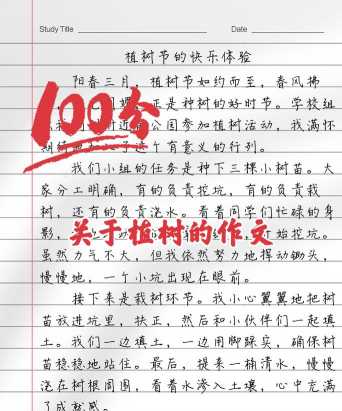 Study Title
Date
植树节的快乐体验
阳春三月，植树节如约而至，春风拂
正是种树的好时节。学校组
公园参加植树活动，我满怀
有意义的行列。
100分
我们小组的任务是种下三棵小树苗。大
家分工明确，有的负责挖坑，有的负责栽
树，还有的负责浇水。看着同学们忙碌的身
影，
开始挖坑。
关于植树的作文
虽然力气不大，但我依然努力地挥动锄头，
慢慢地，一个小坑出现在眼前。
接下来是栽树环节。我小心翼翼地把树
苗放进坑里，扶正，然后和小伙伴们一起填
土。我们一边填土，一边用脚踩实，确保树
苗稳稳地站住。最后，提来一桶清水，慢慢
浇在树根周围，看着水渗入土壤，心中充满
了成就感。